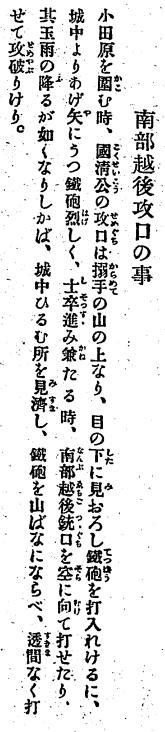 南部越後攻口の事
小田原を圍む時、國清公の攻口は搦手の山の上なり、目の下に見おろし鐵砲を打入れけるに、
城中よりあげ矢にうつ鐵砲烈しく、士卒進み兼たる時、南部越後銃口を空に向て打せたり、
其玉雨の降るが如くなりしかば、城中ひるむ所を見濟し、鐵砲を山ばなにならべ、透間なく打
せて攻破りけり。